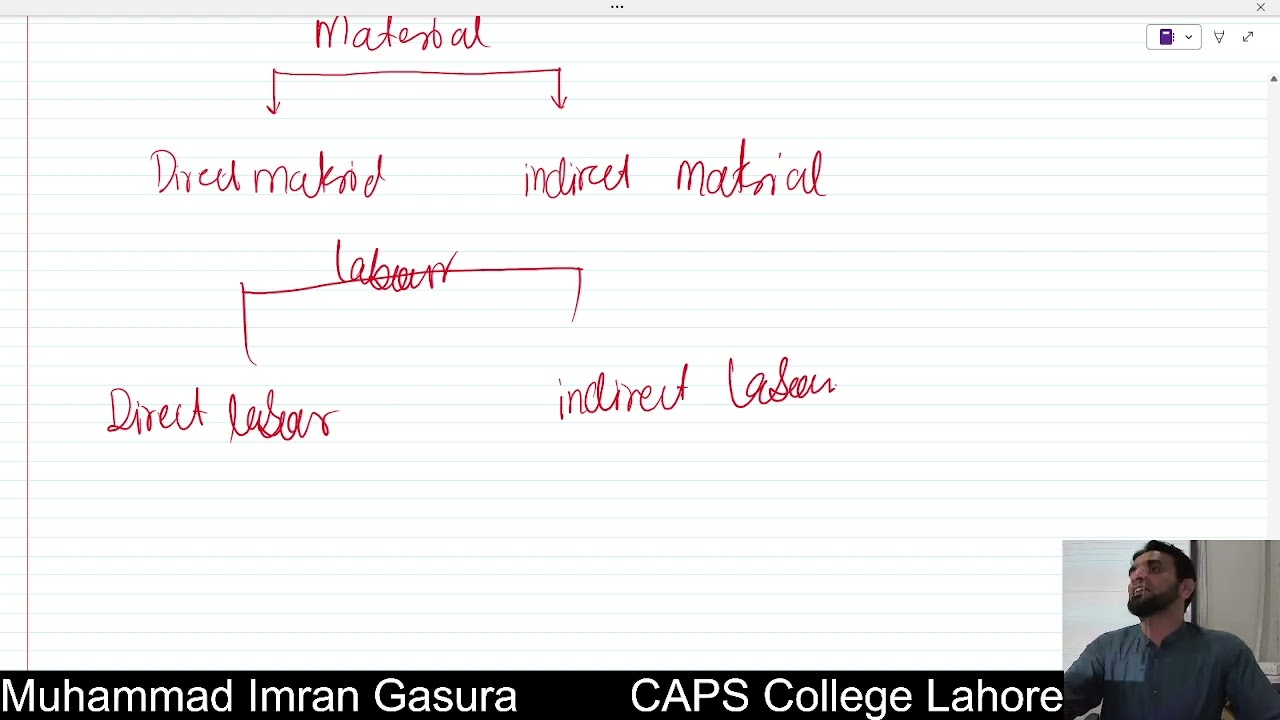 Material
Direct material indirect material
labour
Direct labour indirect labour
Muhammad Imran Gasura CAPS College Lahore